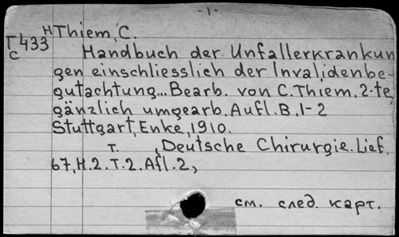 -1-
H Thiem, C.
T433
C
Handbuch der Unfallerkrankun
gen einschliesslich der Invalidenbe-
gutachtung... Bearb. von C. Thiem. 2-te,
gänzlich umgearb. Aufl. B. 1-2
Stuttgart, Enke, 1910.
T. , Deutsche Chirurgie. Lief.
67, H. 2. T. 2. Afl. 2,
см. след. карт.